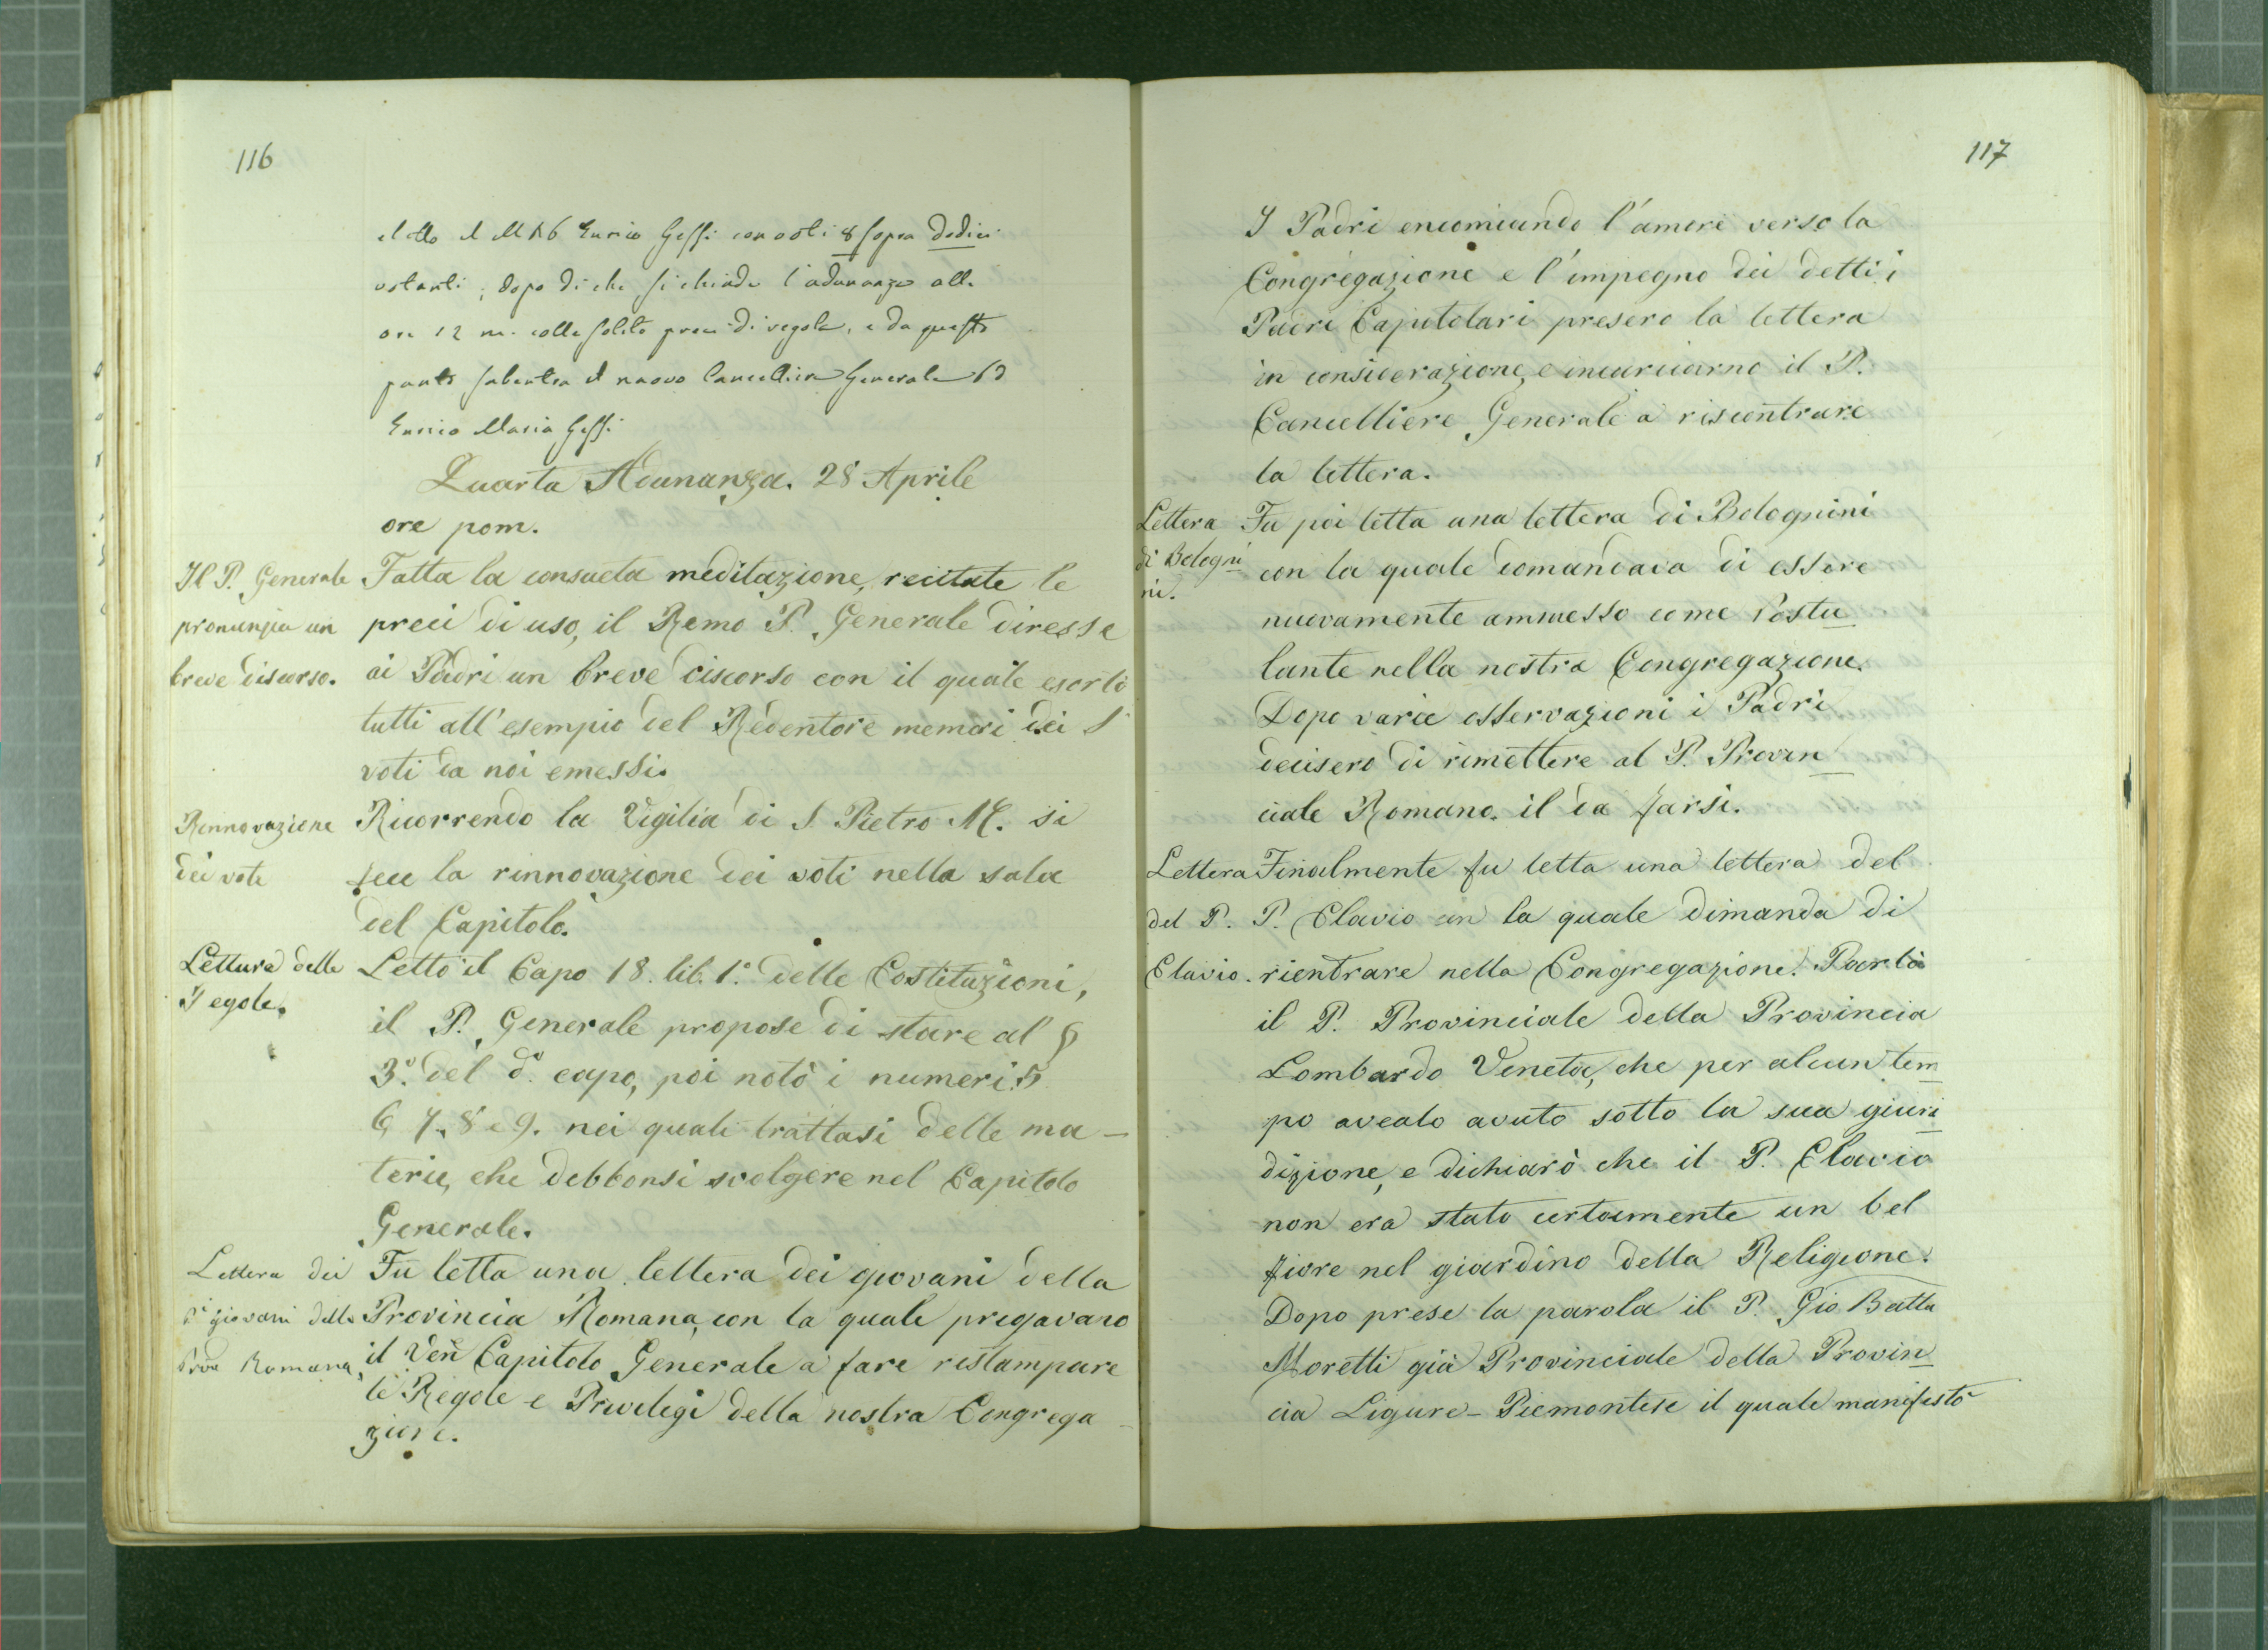 116
eletto il M R P Enrico Gessi con voti 8 sopra dodici
votanti; dopo di che si chiude l'adunanza alle
ore 12 m. colle solite preci di regola, e da questo
punto subentra il nuovo Cancelliere Generale P. D.
Enrico Maria Gessi
Quarta Adunanza. 28 Aprile
ore pom.
Il P. Generale
pronunzia un
breve discorso.
Fatta la consueta meditazione, recitate le
preci di uso, il Remo P. Generale diresse
ai Padri un breve discorso con il quale esortò
tutti all'esempio del Redentore memori dei S
voti da noi emessi.
Rinnovazione
dei voti
Ricorrendo la Vigilia di S. Pietro M. si
fece la rinnovazione dei voti nella sala
del Capitolo.
Lettura delle
Regole.
Letto il Capo 18. lib. 1.° delle Costituzioni,
il P. Generale propose di stare al §
3.° del d.° capo, poi notò i numeri 5
6, 7, 8 e 9. nei quali trattasi delle ma-
terie, che debbonsi svolgere nel Capitolo
Generale.
Lettera dei
giovani della
Prov Romana.
Fu letta una lettera dei giovani della
Provincia Romana, con la quale pregavano
il Ven Capitolo Generale a fare ristampare
le Regole e Privilegi della nostra Congrega-
zione.
117
I Padri encomiando l'amore verso la
Congregazione e l'impegno dei detti i
Padri Capitolari presero la lettera
in considerazione, e incaricarno il P.
Cancelliere Generale a riscontrare
la lettera.
Lettera
di Bologni
ni.
Fu poi letta una lettera di Bolognini
con la quale domandava di essere
nuovamente ammesso come Postu
lante nella nostra Congregazione.
Dopo varie osservazioni i Padri
decisero di rimettere al P. Provin
ciale Romano. il da farsi.
Lettera
del P.
Clavio.
Finalmente fu letta una lettera del
P. Clavio in la quale dimanda di
rientrare nella Congregazione. Parlò
il P. Provinciale della Provincia
Lombardo Veneta, che per alcun tem
po avealo avuto sotto la sua giuri
dizione, e dichiarò che il P. Clavio
non era stato certamente un bel
fiore nel giardino della Religione.
Dopo prese la parola il P. Gio Batta
Moretti già Provinciale della Provin
cia Ligure-Piemontese il quale manifestò